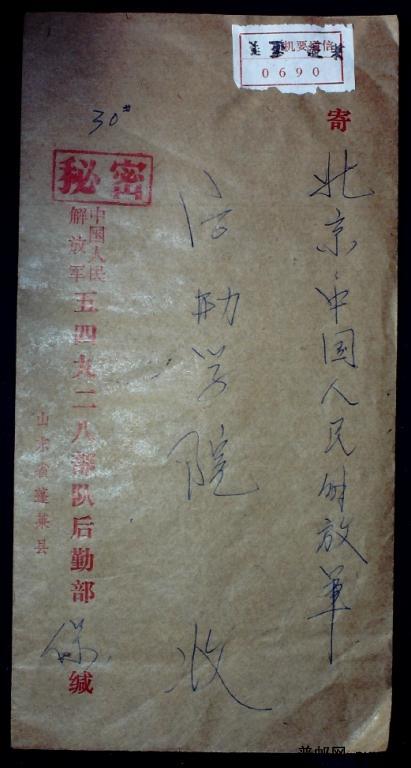 机要通信
0690
寄
北京中国人民解放军
后勤学院 收
30#
秘密
中国人民
解放军
五四九二八部队后勤部 缄
山东省蓬莱县
普邮网